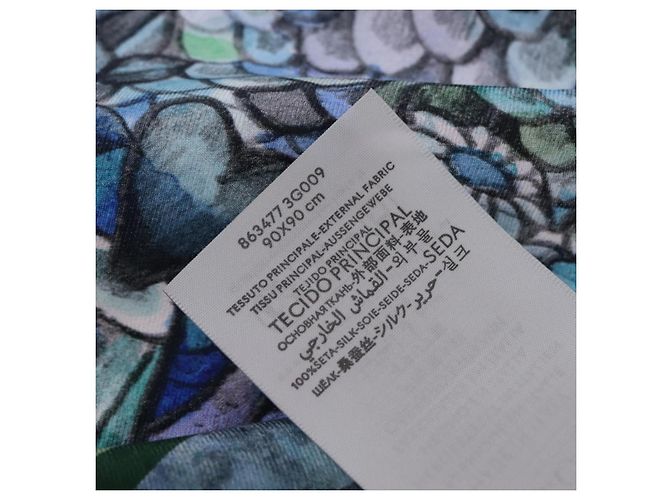 863477 3G009
90X90 cm
TESSUTO PRINCIPALE-EXTERNAL FABRIC
TISSU PRINCIPAL-AUSSENGEWEBE
TEJIDO PRINCIPAL
TECIDO PRINCIPAL
ОСНОВНАЯ ТКАНЬ-外部面料-表地
القماش الخارجي-외부몰
100%SETA-SILK-SOIE-SEIDE-SEDA-SEDA
ШЁЛК-桑蚕丝-シルク-حرير-실크